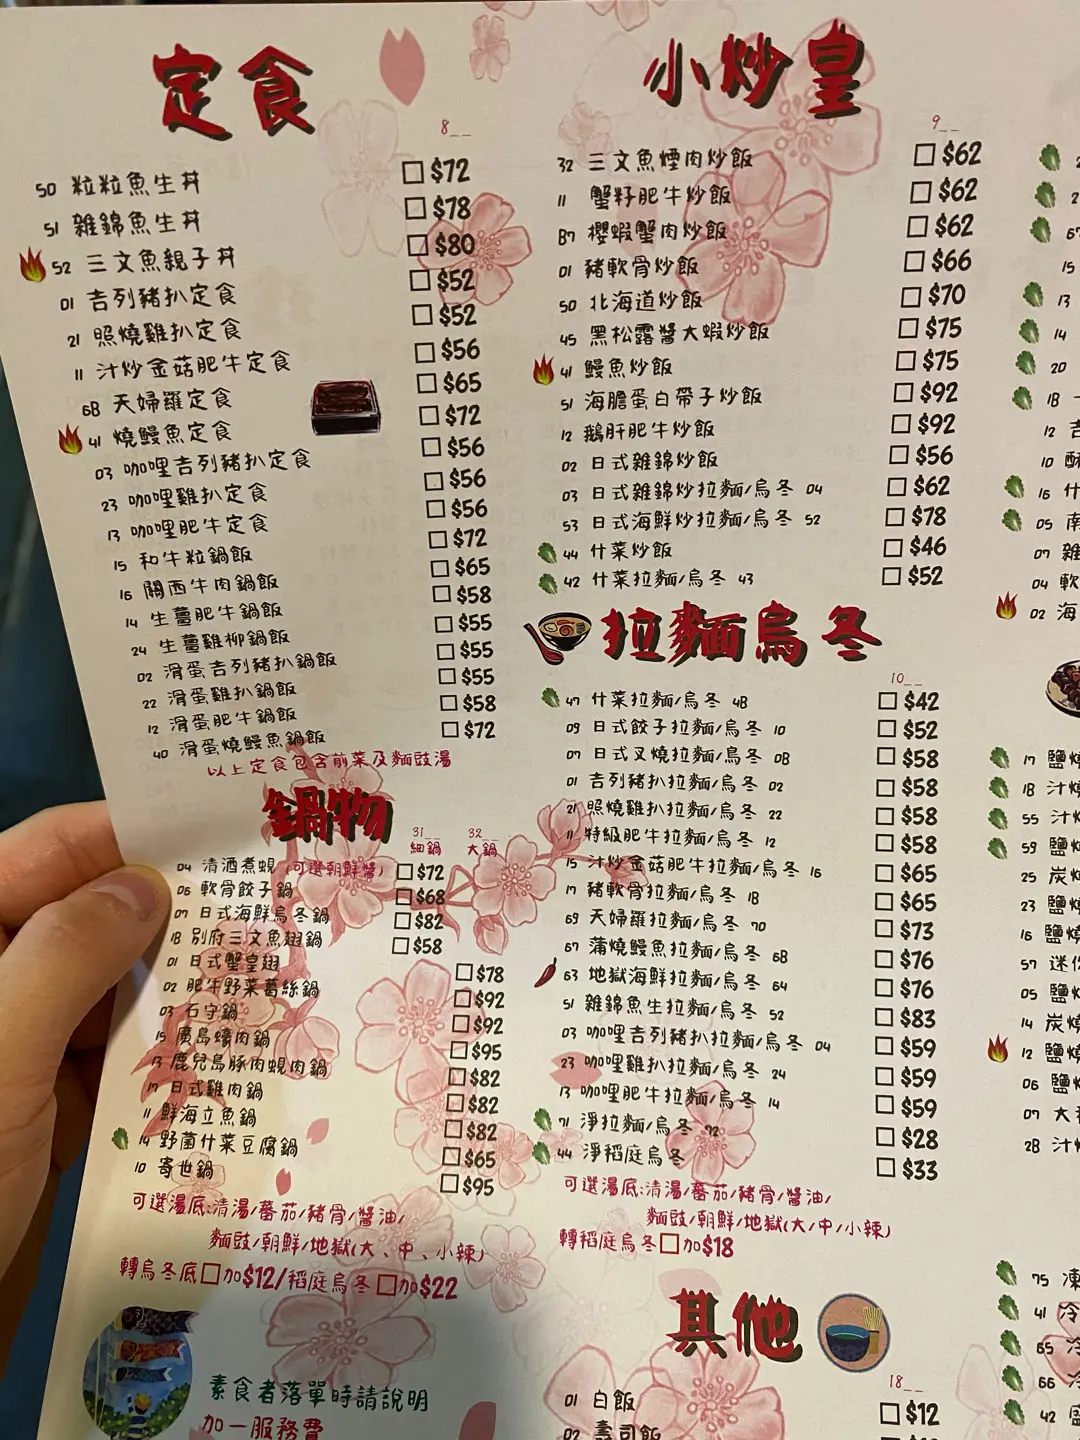 定食
8__
50 粒粒魚生丼 $72
51 雜錦魚生丼 $78
52 三文魚親子丼 $80
01 吉列豬扒定食 $52
21 照燒雞扒定食 $52
11 汁炒金菇肥牛定食 $56
68 天婦羅定食 $65
41 燒鰻魚定食 $72
03 咖哩吉列豬扒定食 $56
23 咖哩雞扒定食 $56
13 咖哩肥牛定食 $56
15 和牛粒鍋飯 $72
16 關西牛肉鍋飯 $65
14 生薑肥牛鍋飯 $58
24 生薑雞柳鍋飯 $55
02 滑蛋吉列豬扒鍋飯 $55
22 滑蛋雞扒鍋飯 $55
12 滑蛋肥牛鍋飯 $58
40 滑蛋燒鰻魚鍋飯 $72
以上定食包含前菜及麵豉湯
鍋物
31__ 32__
細鍋 大鍋
04 清酒煮蜆(可選朝鮮醬) $72
06 軟骨餃子鍋 $68
07 日式海鮮烏冬鍋 $82
18 別府三文魚翅鍋 $58
01 日式蟹皇翅 $78
02 肥牛野菜葛絲鍋 $92
03 石守鍋 $92
15 廣島蠔肉鍋 $95
13 鹿兒島豚肉蜆肉鍋 $82
17 日式雞肉鍋 $82
11 鮮海立魚鍋 $82
14 野菌什菜豆腐鍋 $65
10 寄世鍋 $95
可選湯底:清湯/蕃茄/豬骨/醬油/
麵豉/朝鮮/地獄(大、中、小辣)
轉烏冬底 加$12/稻庭烏冬 加$22
素食者落單時請說明
加一服務費
小炒皇
9__
32 三文魚煙肉炒飯 $62
11 蟹籽肥牛炒飯 $62
87 櫻蝦蟹肉炒飯 $62
01 豬軟骨炒飯 $66
50 北海道炒飯 $70
45 黑松露醬大蝦炒飯 $75
41 鰻魚炒飯 $75
51 海膽蛋白帶子炒飯 $92
12 鵝肝肥牛炒飯 $92
02 日式雜錦炒飯 $56
03 日式雜錦炒拉麵/烏冬 04 $62
53 日式海鮮炒拉麵/烏冬 52 $78
44 什菜炒飯 $46
42 什菜拉麵/烏冬 43 $52
拉麵烏冬
10__
47 什菜拉麵/烏冬 48 $42
09 日式餃子拉麵/烏冬 10 $52
07 日式叉燒拉麵/烏冬 08 $58
01 吉列豬扒拉麵/烏冬 02 $58
21 照燒雞扒拉麵/烏冬 22 $58
11 特級肥牛拉麵/烏冬 12 $58
15 汁炒金菇肥牛拉麵/烏冬 16 $65
17 豬軟骨拉麵/烏冬 18 $65
69 天婦羅拉麵/烏冬 70 $73
67 蒲燒鰻魚拉麵/烏冬 68 $76
63 地獄海鮮拉麵/烏冬 64 $76
51 雜錦魚生拉麵/烏冬 52 $83
03 咖哩吉列豬扒拉麵/烏冬 04 $59
23 咖哩雞扒拉麵/烏冬 24 $59
13 咖哩肥牛拉麵/烏冬 14 $59
71 淨拉麵/烏冬 72 $28
44 淨稻庭烏冬 $33
可選湯底:清湯/蕃茄/豬骨/醬油/
麵豉/朝鮮/地獄(大/中/小辣)
轉稻庭烏冬 加$18
其他
18__
01 白飯 $12
02 壽司飯
67
15
13
14
20
18
12 吉
10 酥
16 什
05 南
07 雜
04 軟
02 海
17 鹽燒
18 汁燒
55 汁
59 鹽
25 炭
23 鹽燒
16 鹽燒
57 迷你
05 鹽
14 炭燒
12 鹽燒
06 鹽
07 大
28 汁
75 凍
41 冷
65 冷
66 冷
42